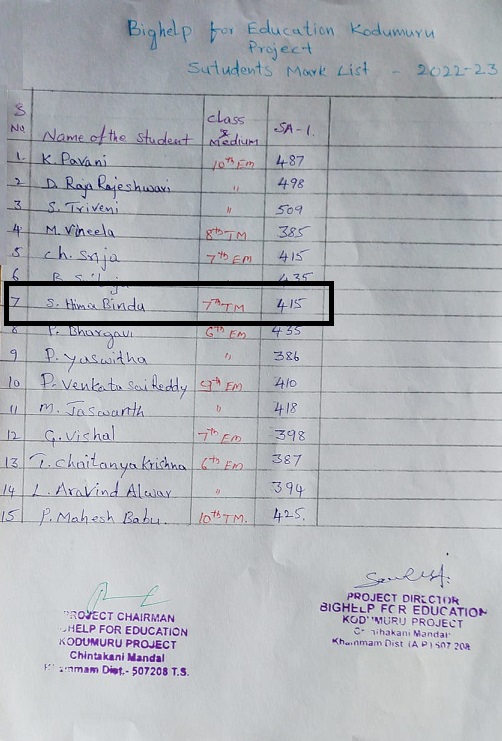 Bighelp for Education Kodumuru
Project
Sutudents Mark List - 2022-23
S No Name of the Student class & Medium SA-1.
1. K Pavani 10th EM 487
2 D. Raja Rajeshwari " 498
3 S. Triveni " 509
4 M. Vineela 8th TM 385
5 Ch. Srija 7th EM 415
6 B. 435
7 S. Hima Bindu 7th TM 415
8 P. Bhargavi 6th EM 435
9 P. Yaswitha " 386
10 P. Venkata Sai Reddy 9th EM 410
11 M. Jaswanth " 418
12 G. Vishal 7th EM 398
13 T. Chaitanya Krishna 6th EM 387
14 L. Aravind Alwar " 394
15 P. Mahesh Babu. 10th TM. 425.
PROJECT CHAIRMAN
HELP FOR EDUCATION
KODUMURU PROJECT
Chintakani Mandal
Dist.- 507208 T.S.
PROJECT DIRECTOR
BIGHELP FOR EDUCATION
KODUMURU PROJECT
Mandal
Khammam Dist (A P) 507 208